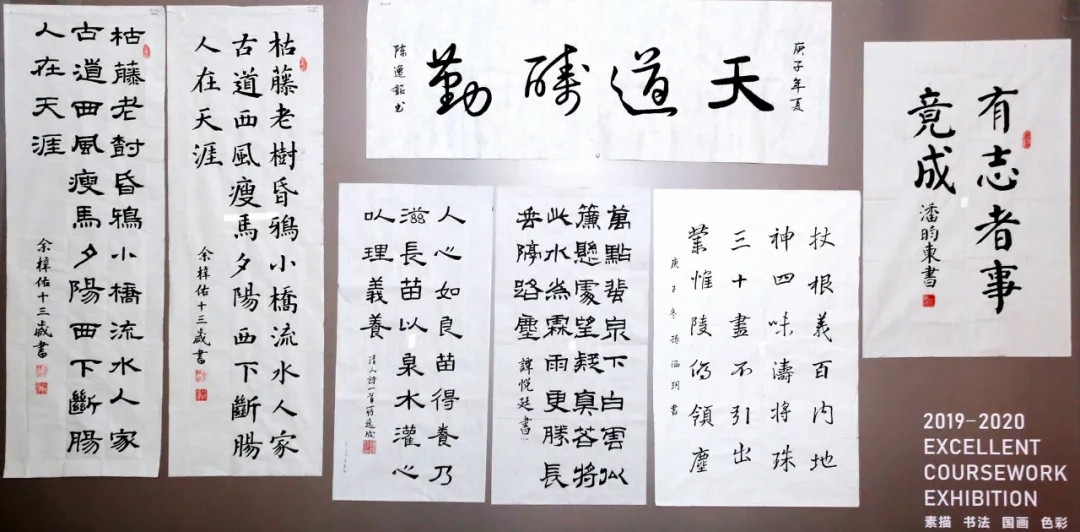 枯藤老樹昏鴉小橋流水人家
古道西風瘦馬夕陽西下斷腸
人在天涯
余梓佑十三歲書
枯藤老樹昏鴉小橋流水人家
古道西風瘦馬夕陽西下斷腸
人在天涯
余梓佑十三歲書
庚子年夏
天道醻勤
陈逸书
人心如良苗得養乃
滋長苗以泉水灌心
以理義養
清人詩一首
萬點飛泉下白雲似
簾懸處望疑真若將
此水為霖雨更勝長
垂隔路塵
譚悅廷書
杖根義百內地
神四味濤將殊
三十盡不引出
業惟陵領塵
庚子冬孫玥書
有志者事
竟成
潘昀東書
2019-2020
EXCELLENT
COURSEWORK
EXHIBITION
素描 书法 国画 色彩